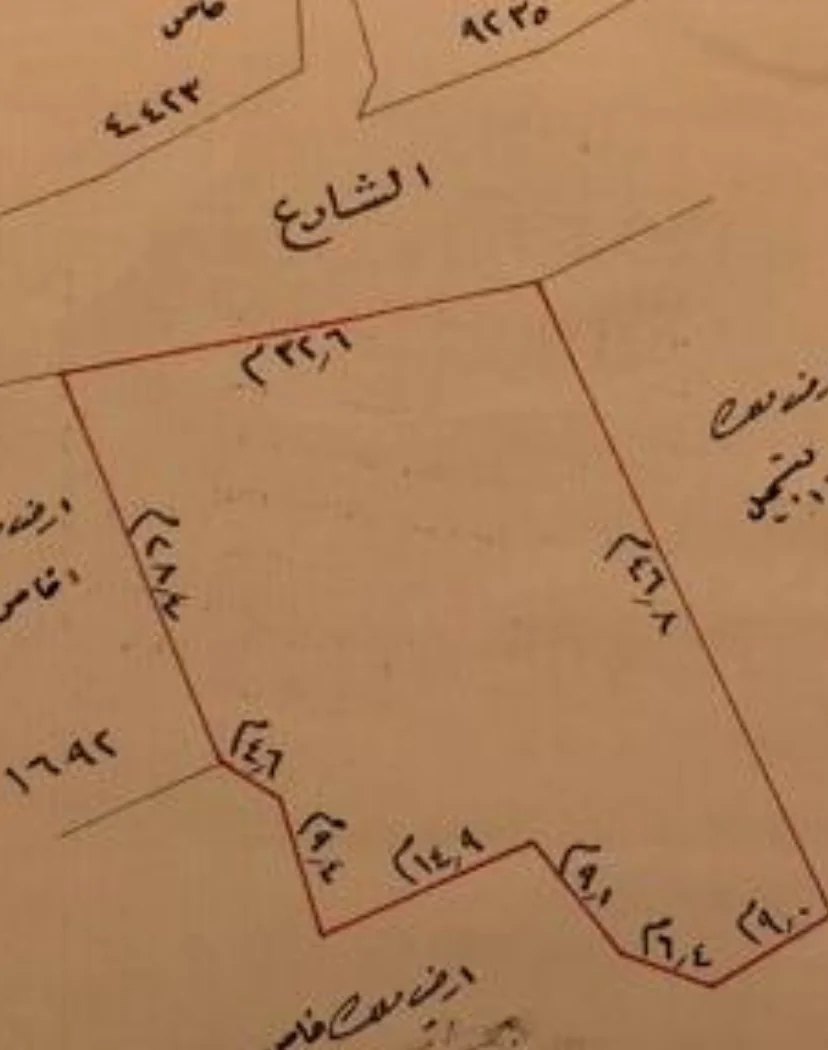 خاص
٩٢٣٥
٤٤٢٣
الشارع
٣٢,٦م
ارض ملك
ارض
٢٨,٤م
٤٦,٨م
خاص
١٦٩٢
٤,٦م
٩,٤م
١٤,٩م
٩,١م
٦,٤م
٩,٠م
ارض ملك خاص